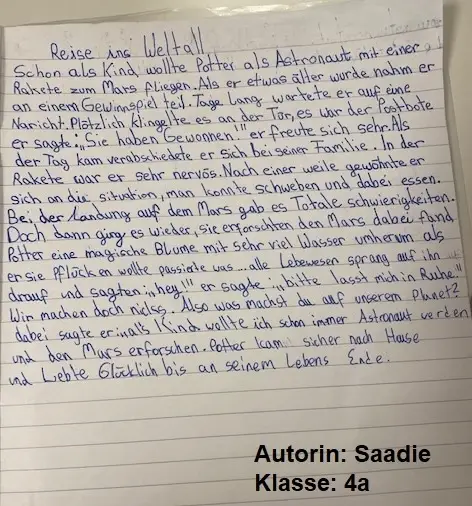 Reise ins Weltall
Schon als Kind wollte Potter als Astronaut mit einer
Rakete zum Mars fliegen. Als er etwas älter wurde nahm er
an einem Gewinnspiel teil. Tage lang wartete er auf eine
Naricht. Plötzlich klingelte es an der Tür, es war der Postbote
er sagte: „Sie haben Gewonnen!" er freute sich sehr. Als
der Tag kam verabschiedete er sich bei seiner Familie. In der
Rakete war er sehr nervös. Nach einer weile gewöhnte er
sich an die situation, man konnte schweben und dabei essen.
Bei der landung auf dem Mars gab es Totale schwierigkeiten.
Doch dann ging es wieder, sie erforschten den Mars dabei fand
Potter eine magische Blume mit sehr viel Wasser umherum als
er sie Pflücken wollte passierte was... alle Lebewesen sprang auf ihn
drauf und sagten: „hey!!" er sagte: „bitte lasst mich in Ruhe"
Wir machen doch nichs. Also was machst du auf unserem Planet?
dabei sagte er: „als Kind wollte ich schon immer Astronaut werden
und den Mars erforschen. Potter kam sicher nach Hause
und Liebte Glücklich bis an seinem Lebens Ende.
Autorin: Saadie
Klasse: 4a